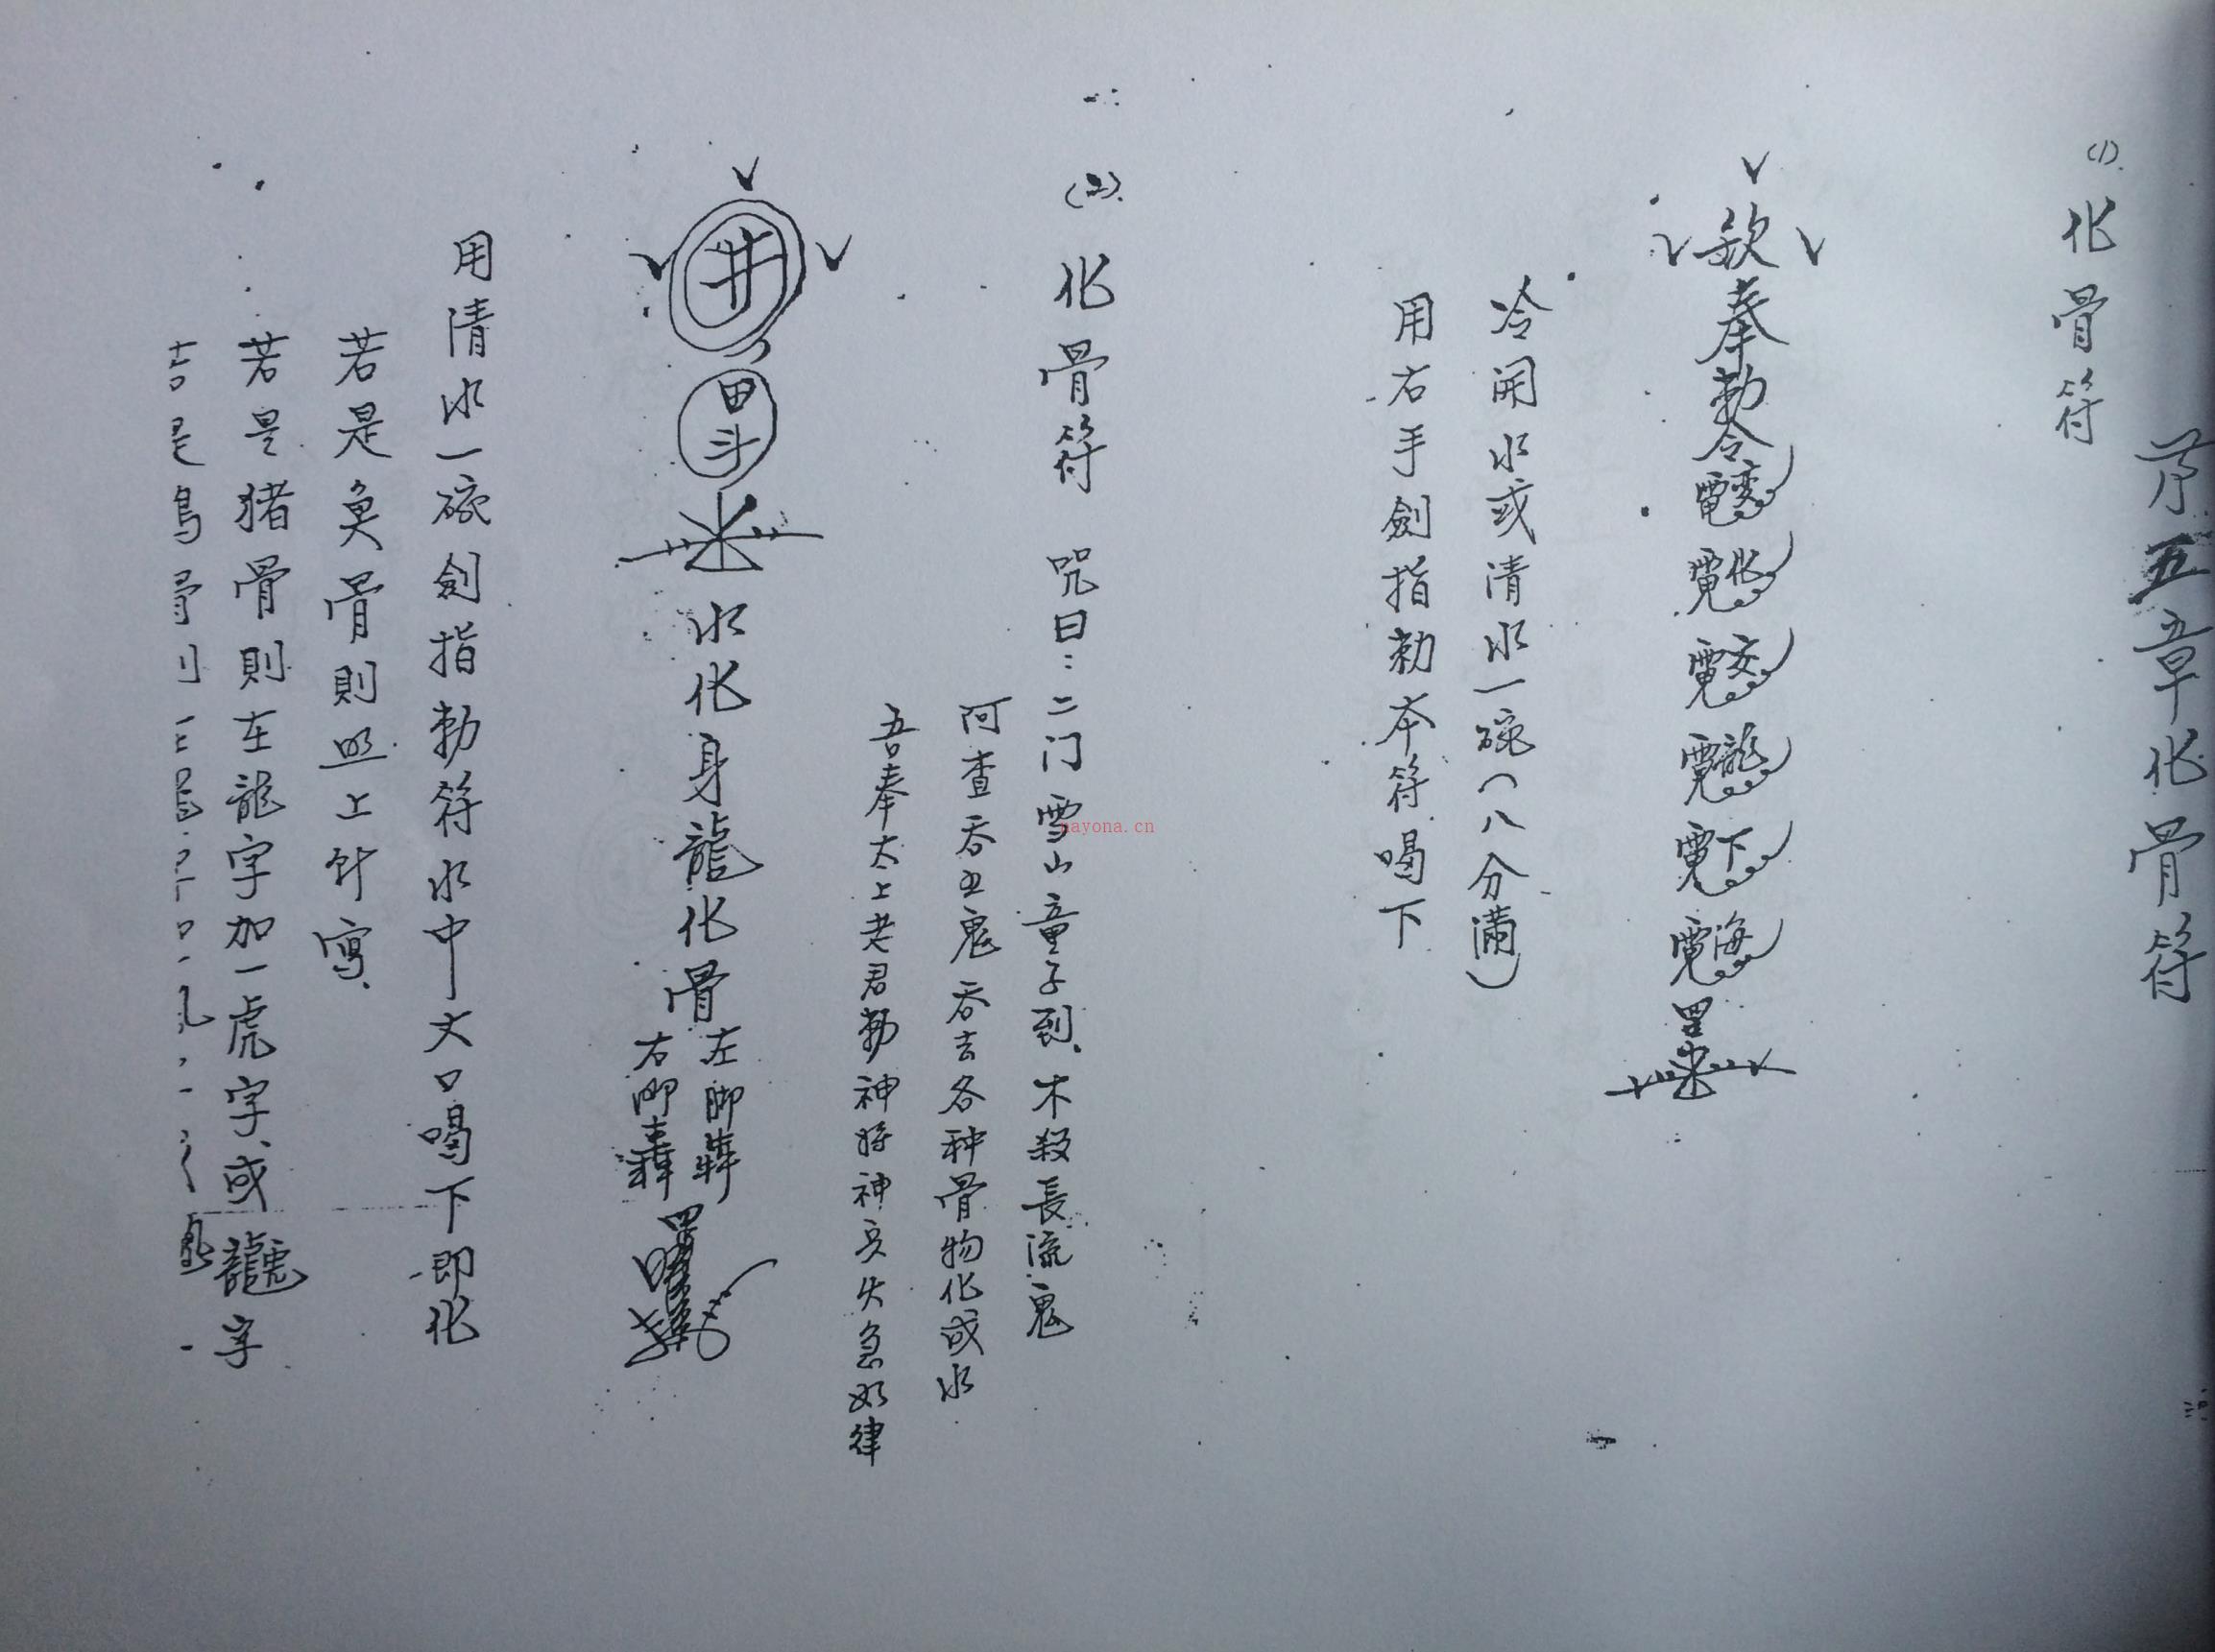 第五章化骨符
(1).化骨符
欽奉勅令 罡
冷開水或清水一碗(八分滿)
用右手劍指勅本符喝下
(2).化骨符 咒曰:二门雪山童子到.木殺長流鬼
阿查吞五鬼吞去各种骨物化成水
吾奉太上老君勅神將神兵火急如律
井 田斗 水化身龍化骨 左脚 右脚 罡
用清水一碗劍指勅符水中大口喝下即化
若是魚骨則照上針寫.
若是猪骨則在龍字加一虎字.或龍虎字
hayona.cn